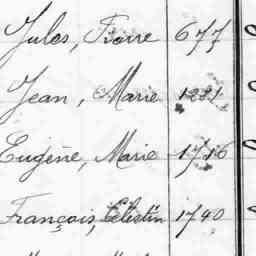 Jules, Pierre 677
Jean, Marie 1281
Eugène, Marie 1716
François, Célestin 1740